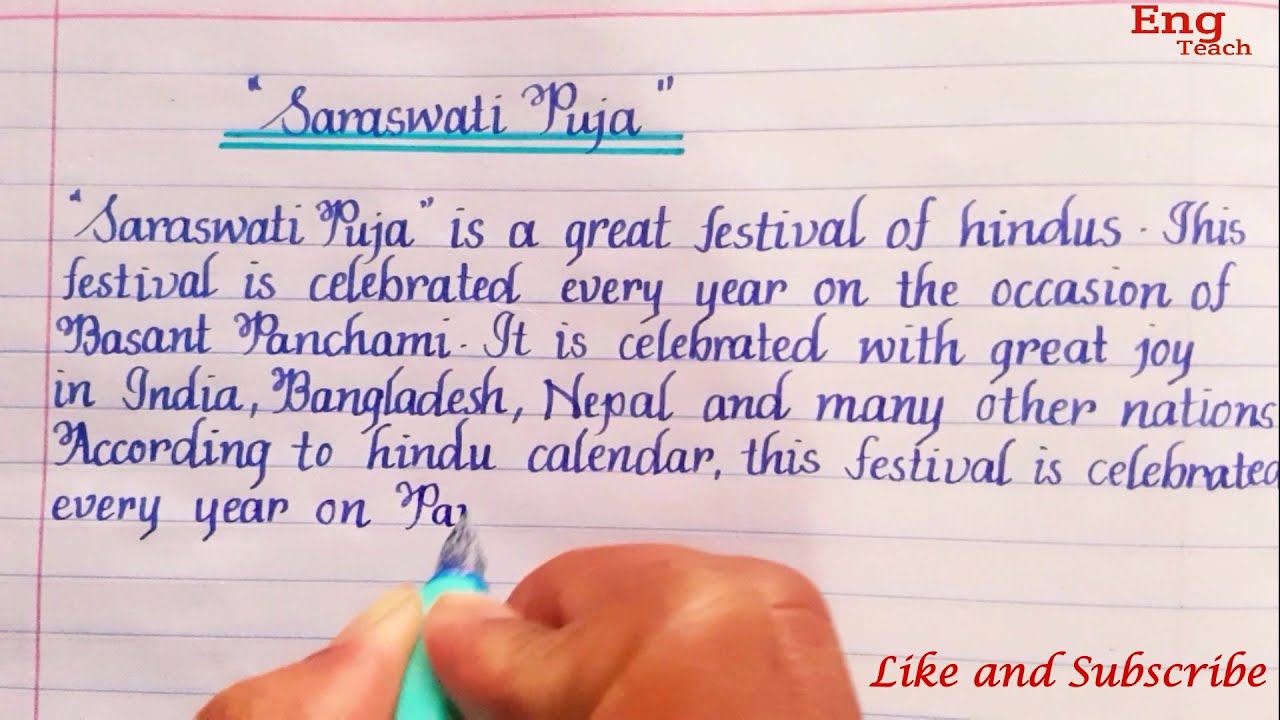 Eng
Teach
"Saraswati Puja"
"Saraswati Puja" is a great festival of hindus. This
festival is celebrated every year on the occasion of
Basant Panchami. It is celebrated with great joy
in India, Bangladesh, Nepal and many other nations
According to hindu calendar, this festival is celebrated
every year on Pan
Like and Subscribe